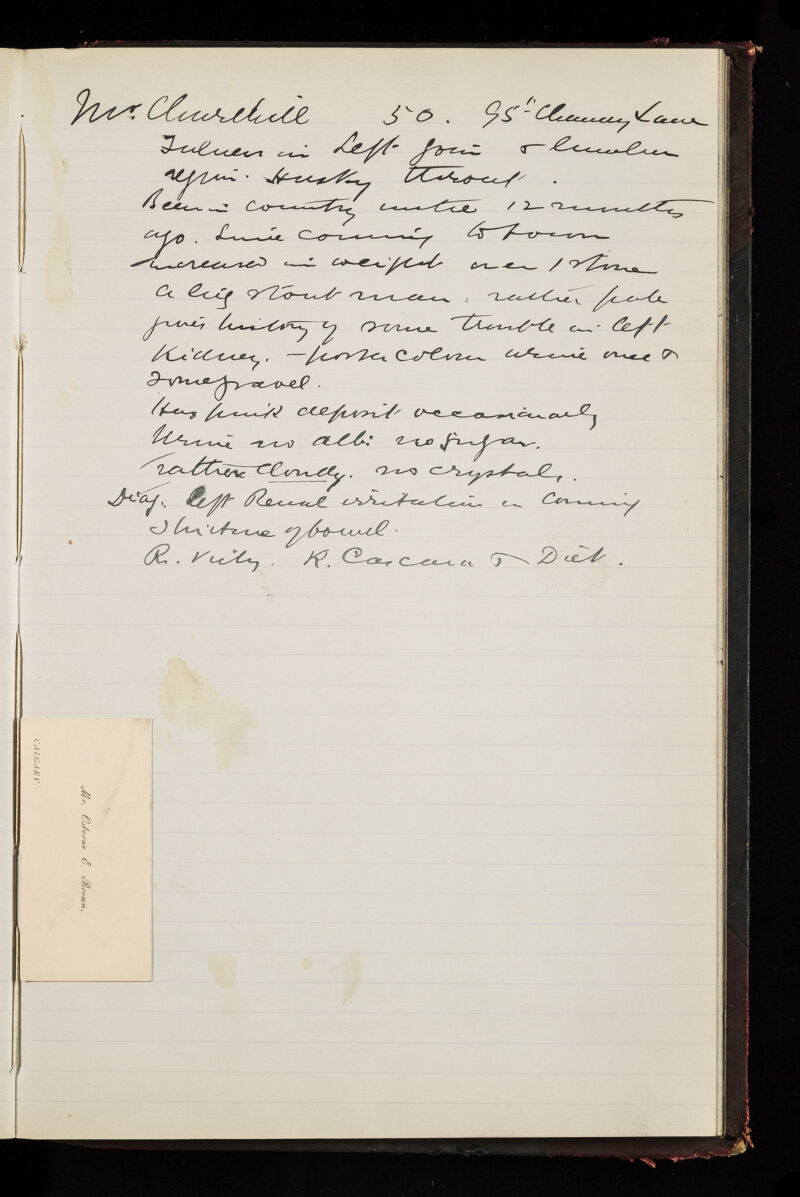 Mr. Churchill 50. 95" Chancery Lane
Fulness in Left groin & lumbar
region. Husky throat.
Been in country until 12 months
ago. Since coming to town
increased in weight over 1 stone
a big stout man. rather pale
gives history of some trouble in left
Kidney. - porter colour urine once &
some gravel.
Has pink deposit occasionally
Urine no alb: no sugar.
rather cloudy. no crystals.
Diag. Left Renal irritation or coming
stricture of bowel.
R. Vichy. R. Cascara & Diet.
Mr. Osborne E. Brown.
CALGARY.